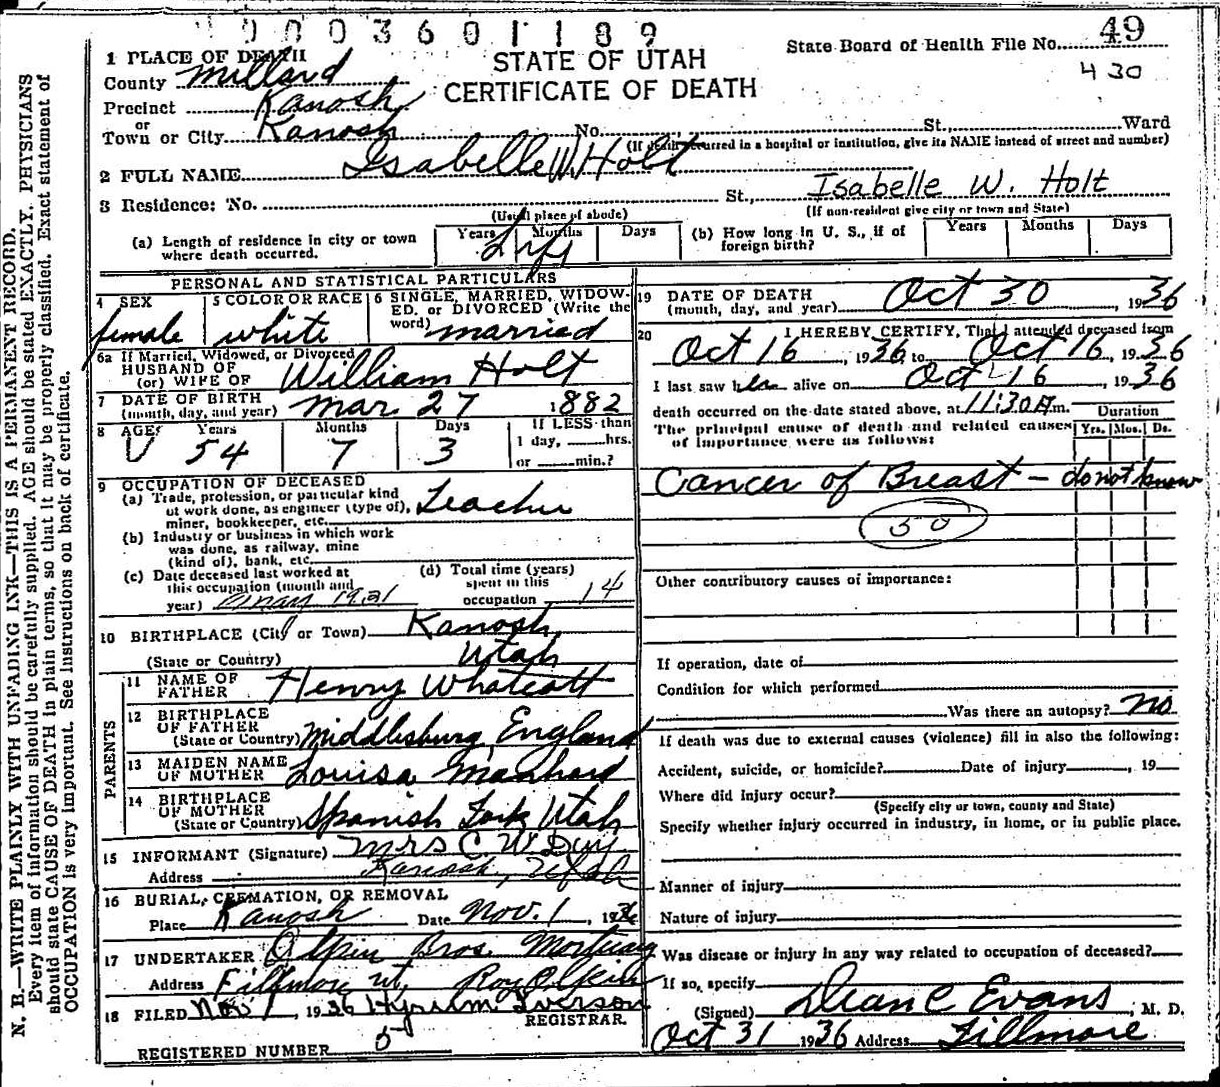 0003601189
49
State Board of Health File No.
430
STATE OF UTAH
CERTIFICATE OF DEATH
1 PLACE OF DEATH
County Millard
Precinct Kanosh
or
Town or City Kanosh No. St., Ward
(If death occurred in a hospital or institution, give its NAME instead of street and number)
2 FULL NAME Isabelle W. Holt
Isabelle W. Holt
3 Residence: No. St.,
(Usual place of abode) (If non-resident give city or town and State)
(a) Length of residence in city or town where death occurred. Years Months Days Life
(b) How long in U. S., if of foreign birth? Years Months Days
PERSONAL AND STATISTICAL PARTICULARS
4 SEX female
5 COLOR OR RACE white
6 SINGLE, MARRIED, WIDOWED. or DIVORCED (Write the word) married
6a If Married, Widowed, or Divorced
HUSBAND OF
(or) WIFE OF William Holt
7 DATE OF BIRTH
(month, day, and year) Mar 27 1882
8 AGE Years 54 Months 7 Days 3
If LESS than
1 day, hrs.
or min.?
9 OCCUPATION OF DECEASED
(a) Trade, profession, or particular kind
of work done, as engineer (type of), Teacher
miner, bookkeeper, etc.
(b) Industry or business in which work
was done, as railway, mine
(kind of), bank, etc.
(c) Date deceased last worked at
this occupation (month and
year) May 1931
(d) Total time (years)
spent in this
occupation 14
10 BIRTHPLACE (City or Town) Kanosh
(State or Country) Utah
PARENTS
11 NAME OF
FATHER Henry Whatcott
12 BIRTHPLACE
OF FATHER
(State or Country) Middlesburg England
13 MAIDEN NAME
OF MOTHER Louisa Manhard
14 BIRTHPLACE
OF MOTHER
(State or Country) Spanish Fork Utah
15 INFORMANT (Signature) Mrs C W
Address Kanosh, Utah
16 BURIAL, CREMATION, OR REMOVAL
Place Kanosh Date Nov. 1, 1936
17 UNDERTAKER Olpin Bros. Mortuary
Address Fillmore Ut, Roy Olpin
18 FILED Nov 1, 1936 Hyrum Iverson
REGISTRAR.
REGISTERED NUMBER 5
19 DATE OF DEATH
(month, day, and year) Oct 30, 1936
20 I HEREBY CERTIFY, That I attended deceased from
Oct 16, 1936, to Oct 16, 1936
I last saw her alive on Oct 16, 1936
death occurred on the date stated above, at 11:30 A m.
The principal cause of death and related causes
of importance were as follows:
Duration
Yrs. Mos. Ds.
Cancer of Breast – do not know
50
Other contributory causes of importance:
If operation, date of
Condition for which performed
Was there an autopsy? no
If death was due to external causes (violence) fill in also the following:
Accident, suicide, or homicide? Date of injury , 19
Where did injury occur?
(Specify city or town, county and State)
Specify whether injury occurred in industry, in home, or in public place.
Manner of injury
Nature of injury
Was disease or injury in any way related to occupation of deceased?
If so, specify
(Signed) Dean C Evans, M. D.
Oct 31 1936 Address Fillmore
N. B.—WRITE PLAINLY WITH UNFADING INK—THIS IS A PERMANENT RECORD.
Every item of information should be carefully supplied. AGE should be stated EXACTLY. PHYSICIANS
should state CAUSE OF DEATH in plain terms, so that it may be properly classified. Exact statement of
OCCUPATION is very important. See instructions on back of certificate.